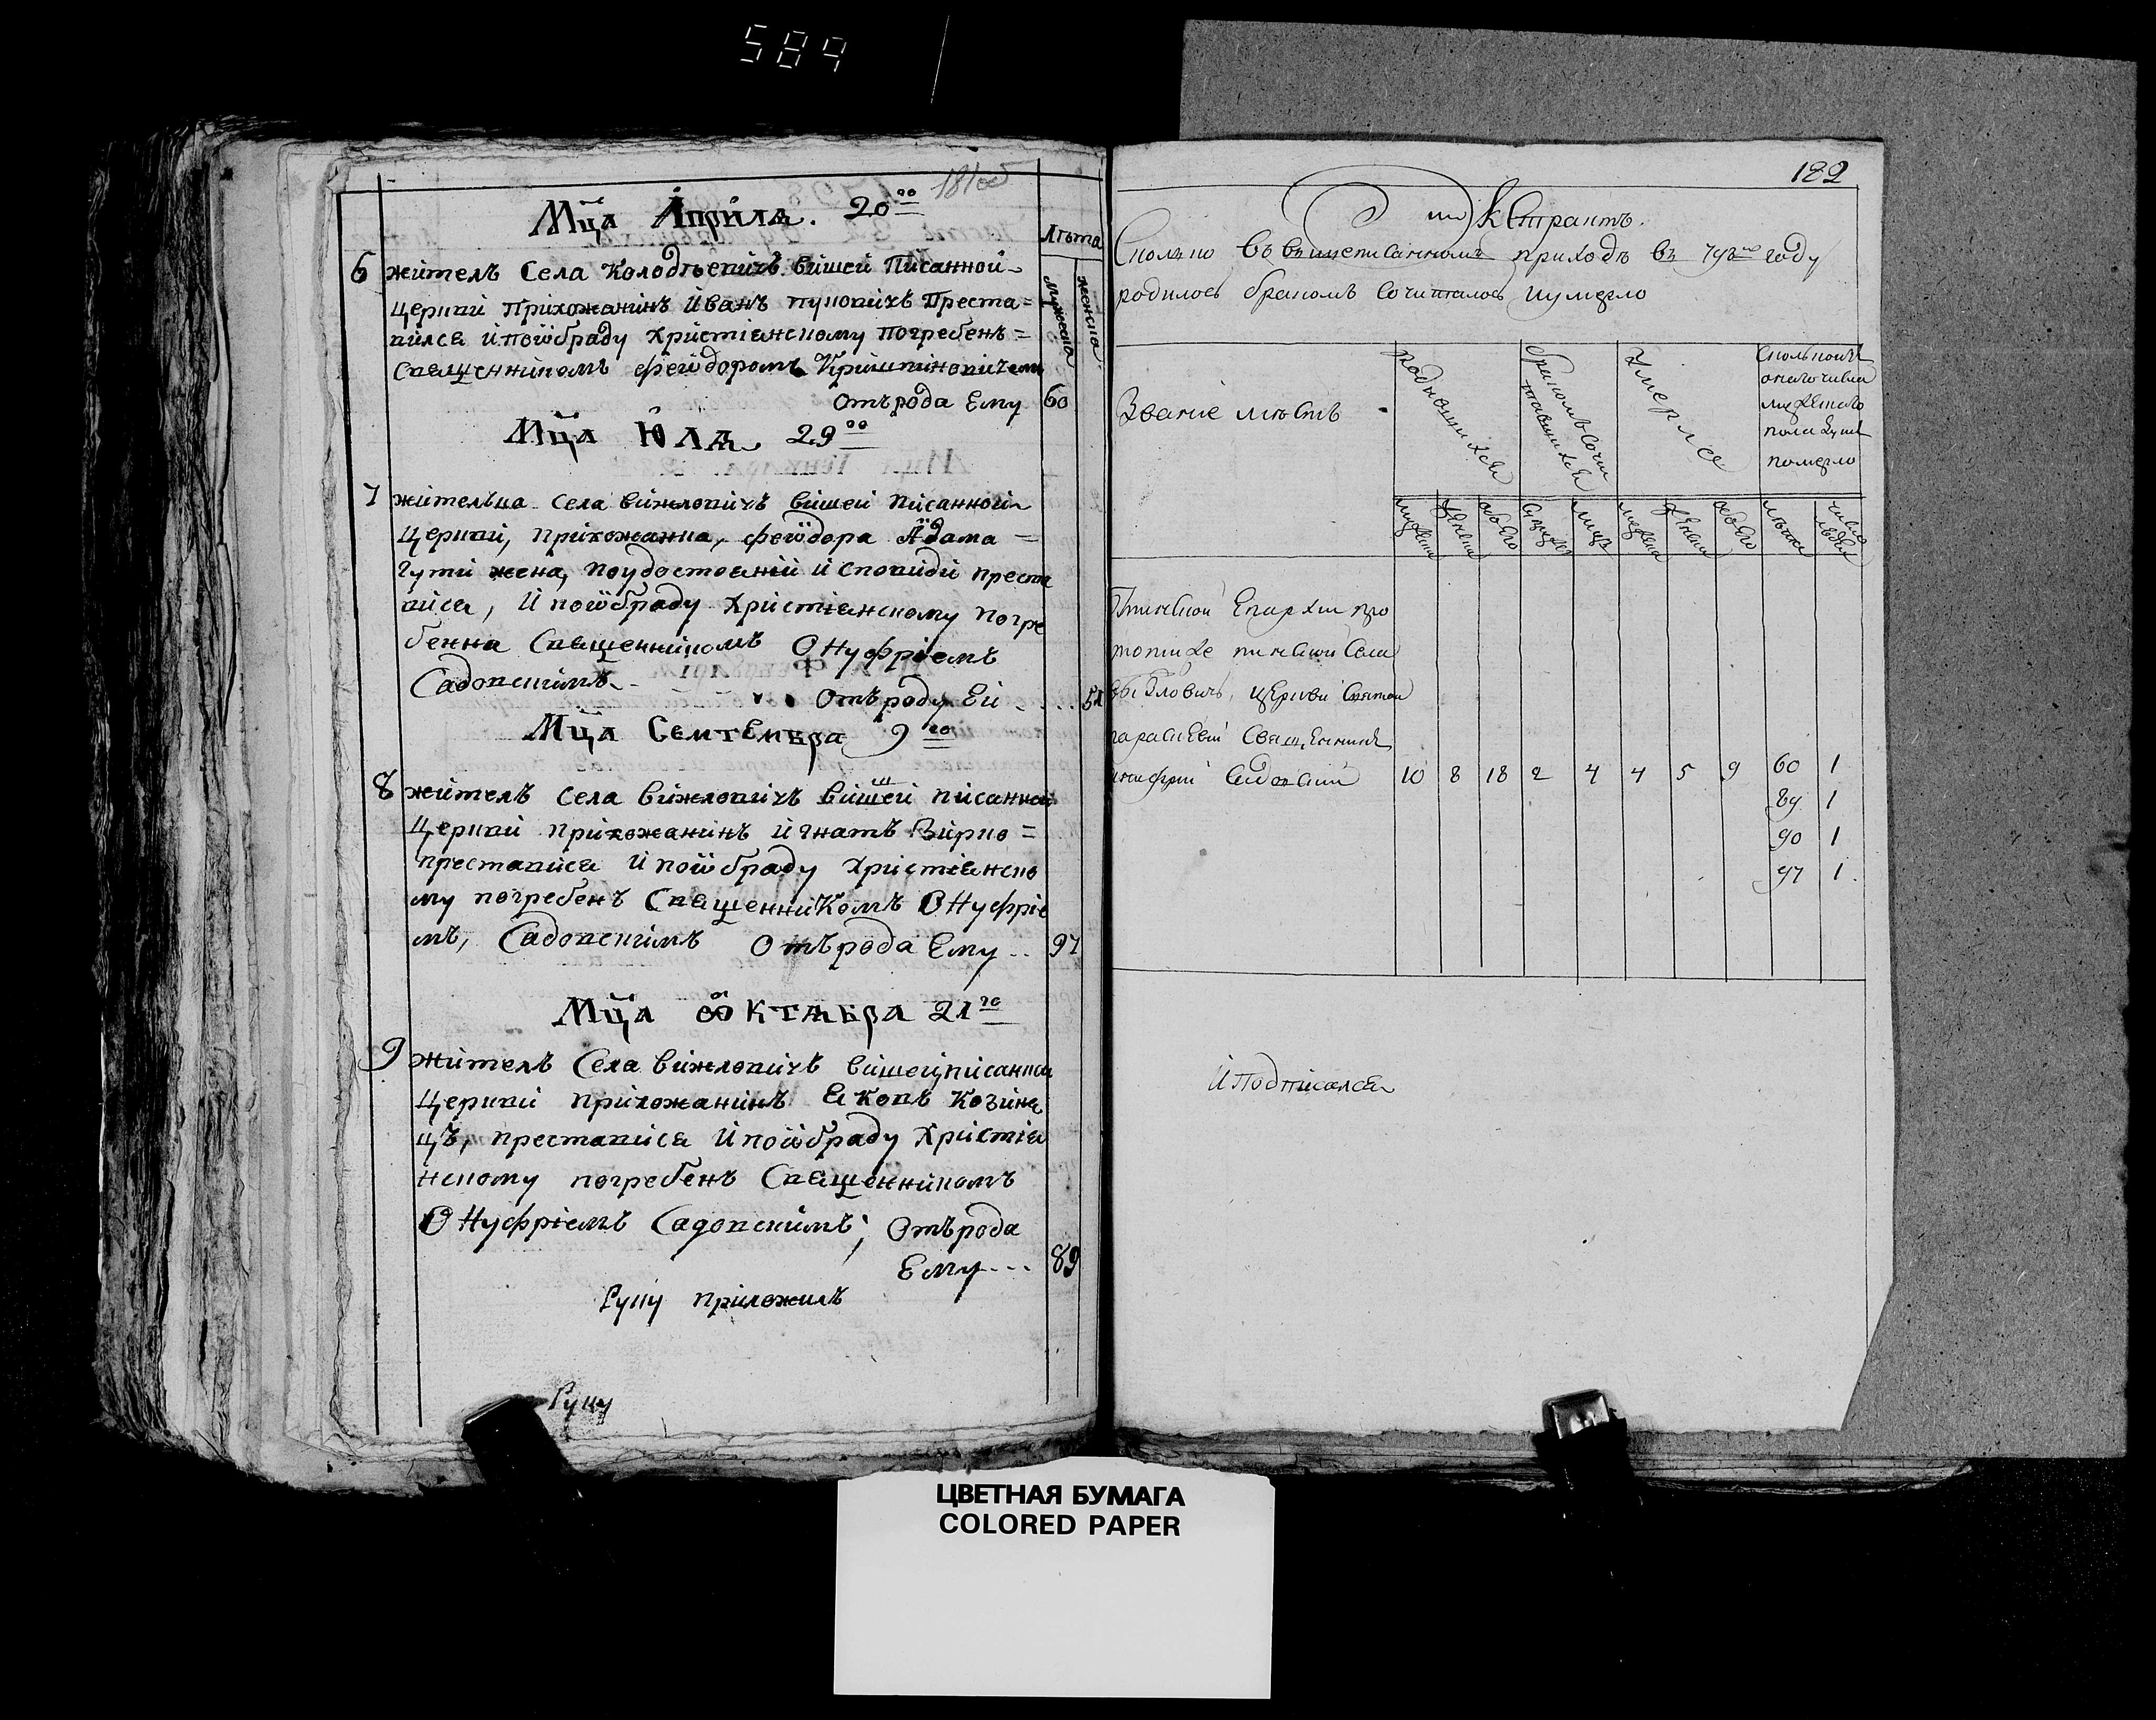 589
181об
Мца Априля. 20го
Лѣта
мужеска
женска
6 жителъ Села Колодѣевичъ вишей Писанной
Церкви Прихожанинъ Иванъ пуковичъ Преста=
вилсѧ и поѡбраду Християнскому Погребенъ=
Священникомъ Феѡдоромъ
Отърода Ему 60
Мца Юлѧ 29го
7 жителъка Села вижловичъ вишей писанной
Церкви, прихожанка, Феѡдора Адама =
Гути жена, поудостоении исповиди преста
висѧ, и поѡбраду Християнскому погре
бенна Священникомъ Онуфриемъ
Садовскимъ
Отъроду Ей
Мца Септемвра 9го
8 жителъ села вижловичъ вишей писанной
Церкви прихожанинъ Игнатъ Вирко =
преставися и поѡбраду християнско
му погребенъ СвященниКомъ Онуфрие
мъ, Садовскимъ Отърода Ему .. 97
Мца Октѧвра 21го
9 жителъ Села вижловичъ вишейписанной
Церкви прихожанинъ Яковъ Козине
цъ, преставися и поѡбраду Християн
нскому погребенъ Священникомъ
Онуфриемъ Садовскимъ; Отърода
Ему --- 89
Руку приложилъ
Руку
182
Екстрактъ.
Сколько въ вышеписанномъ приходѣ въ 798мъ году
родилось бракомъ сочиталось иумерло
Званіе мѣстъ
Родившихся
бракомъ сочи
тавшихся
Умерлся
Сколькихъ
около числа
мужескаго
пола душъ
померло
мужеска
женска
обоего
лицъ
мужеска
женска
обоего
лѣтъ
число
людей
Пинской Епархии про
топопие пинской села
выжловичъ, церкви святой
параскевии Священникъ
Онифрий Садовский 10 8 18 2 4 4 5 9 60 1
89 1
90 1
97 1
И Подписался
ЦВЕТНАЯ БУМАГА
COLORED PAPER